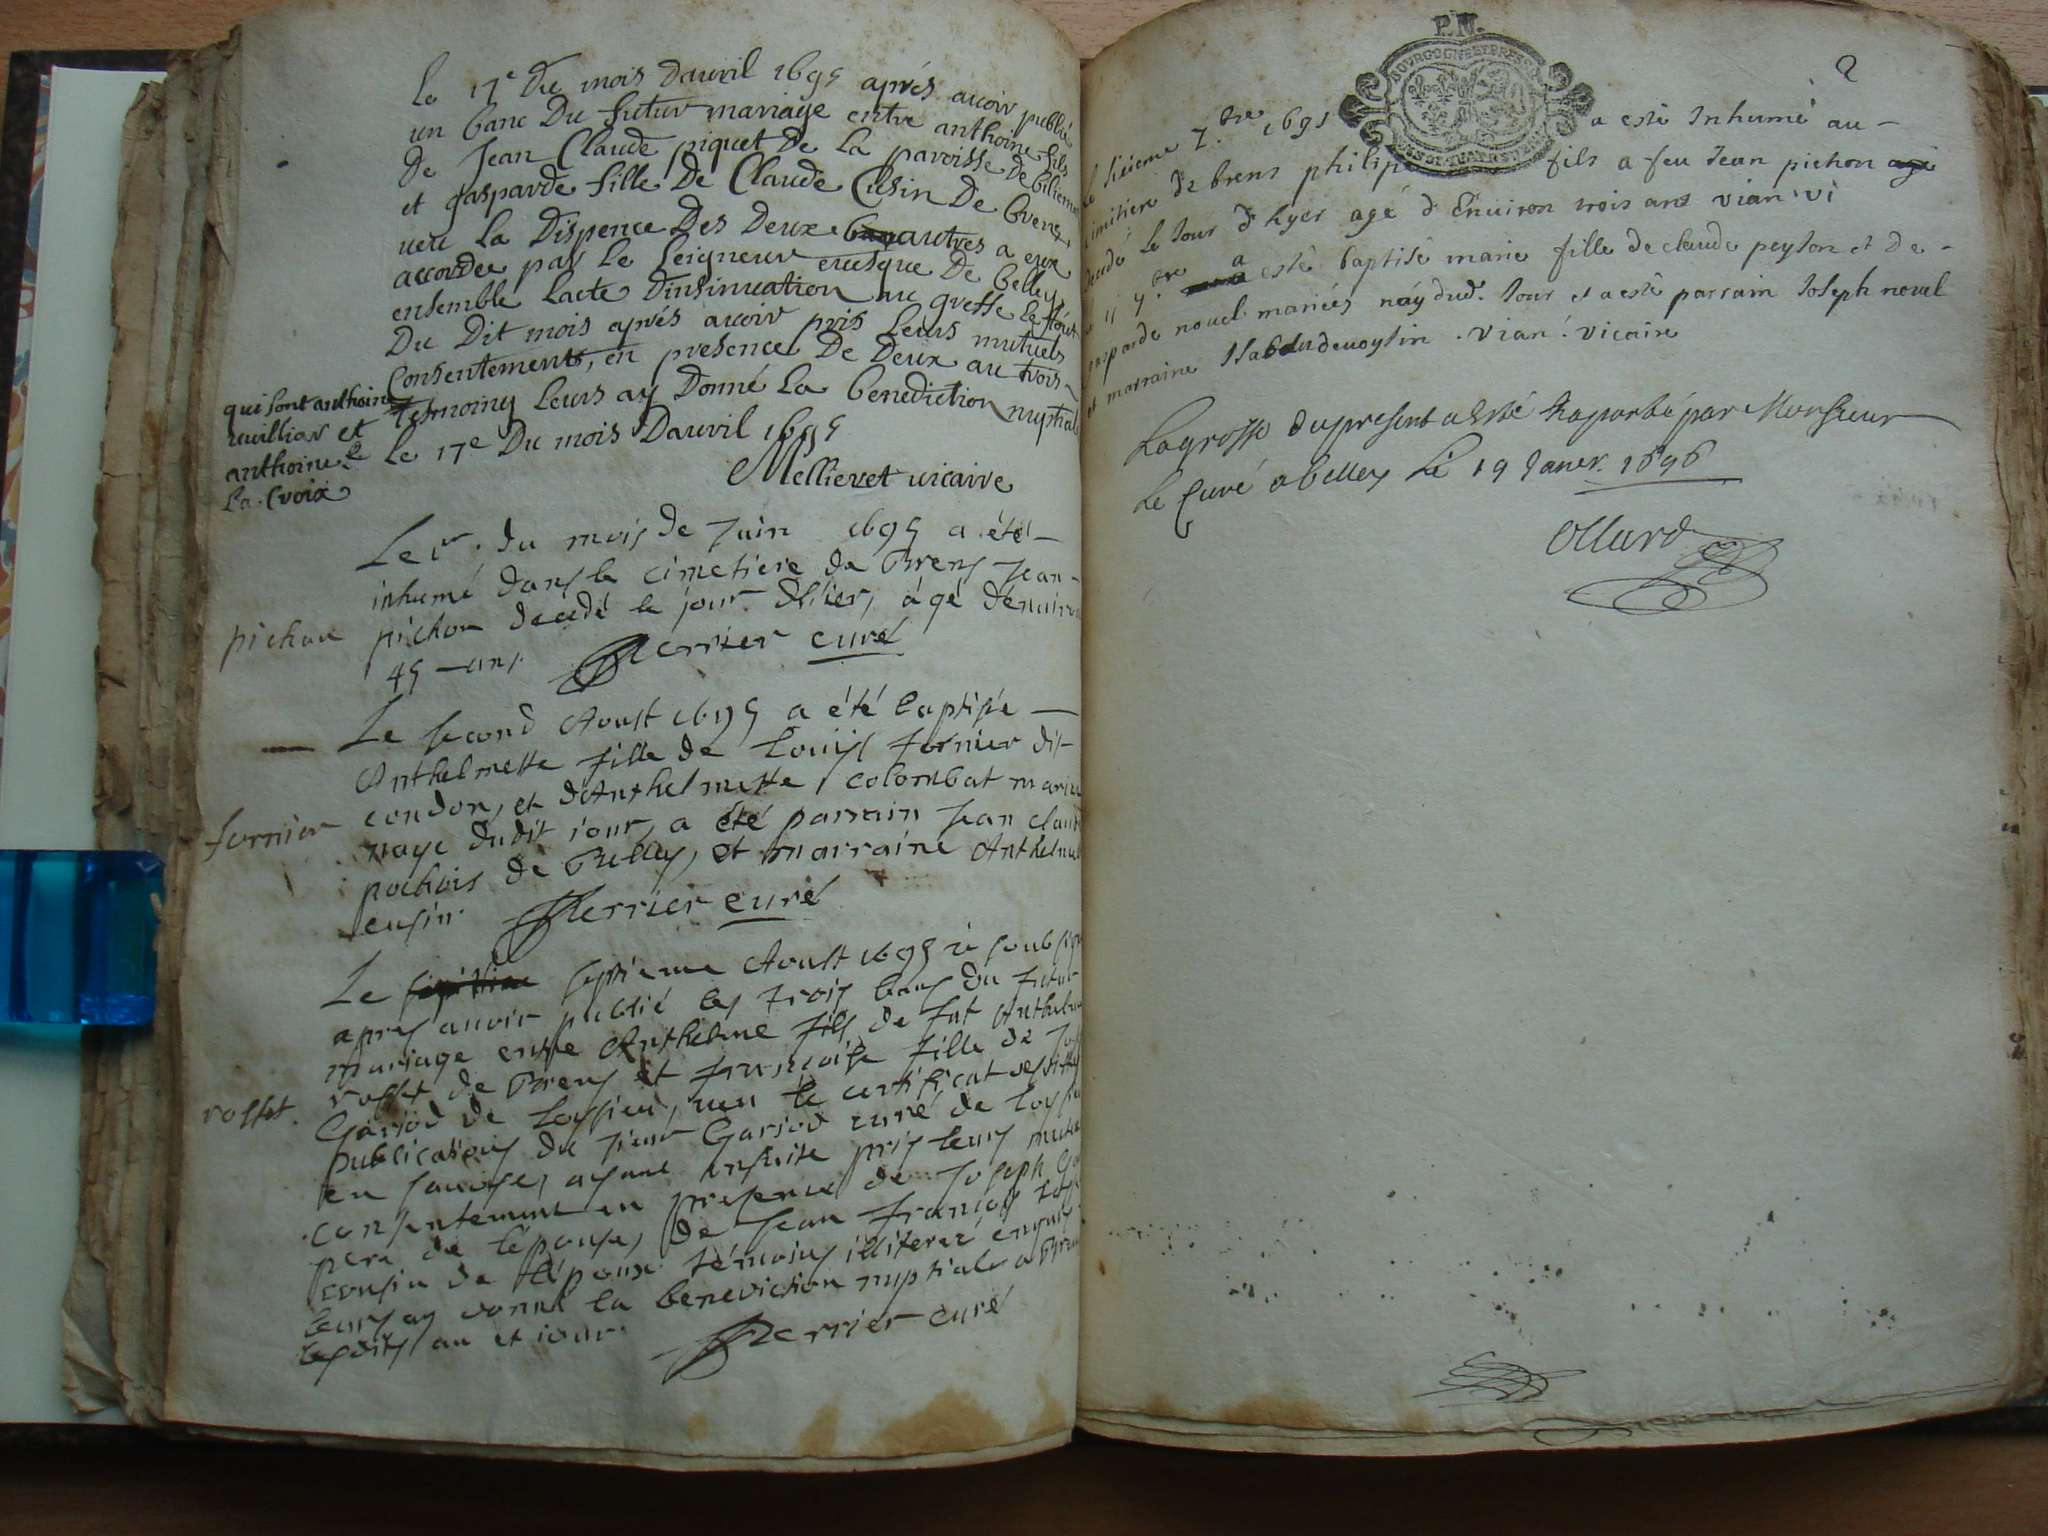 Le 17e Du mois Dauvril 1695 aprés auoir publié
un banc Du futur mariage entre anthoine fils
De Jean Claude piquet De La paroisse De
et gasparde fille De Claude Cusin De brens
ueu La Dispence Des Deux autres a eux
accordée par Le Seigneur euesque De belley
ensemble Lacte Dinsinuation au greffe Le
Du Dit mois aprés auoir pris Leurs mutuels
Consentements, en presence De Deux au trois
tesmoins Leurs ay Donné La benediction nuptiale
Le 17e Du mois Dauvril 1695
Mellieret uicaire
qui sont anthoine
uuillior et
anthoine
La Croix
Le 1er du mois de Juin 1695 a été
inhumé dans le cimetiere de Brens Jean
pichon decedé le jour d'hier, agé denuiron
45 ans Perrier curé
pichon
Le second Aoust 1695 a été baptisée
Anthelmette fille de Louis fornier dit
condon, et d'Anthelmette colombat mariés
naye dudit iour, a été parrain Jean claude
pochois de Belley, et marraine Anthelme
cusin. Perrier curé
fornier
Le septieme Aoust 1695 ie soubsigné
apres auoir publié les trois bans du futur
mariage entre Anthelme fils de fut Anthelme
rosset de Brens et françoise fille de
Gariod de Loysieu, ueu le certificat
publications du sieur Gariod curé de Loysieu
en sauoye, ayant ensuite pris leurs mutuels
consentement en presence de Joseph
pere de l'épouse, de Jean françois
cousin de l'époux témoins illiterés
leurs ay donné la benediction nuptiale a Brens
lesdits an et iour. Perrier curé
rosset.
P.N.
BOURGOGNE BRESSE
2
7.bre 1695 a esté Inhumé au
cimitiere de brens philip fils a feu Jean pichon
decedé le Jour d'hyer agé d'Enuiron trois ans vian vi
esté baptisé marie fille de claude peyson et de
gasparde nouel mariés náy dud. Jour et a esté parrain Joseph nouel
et marraine . vian. vicaire
La grosse du present a esté Raporté par Monsieur
Le Curé a belley Le 19 Janer. 1696